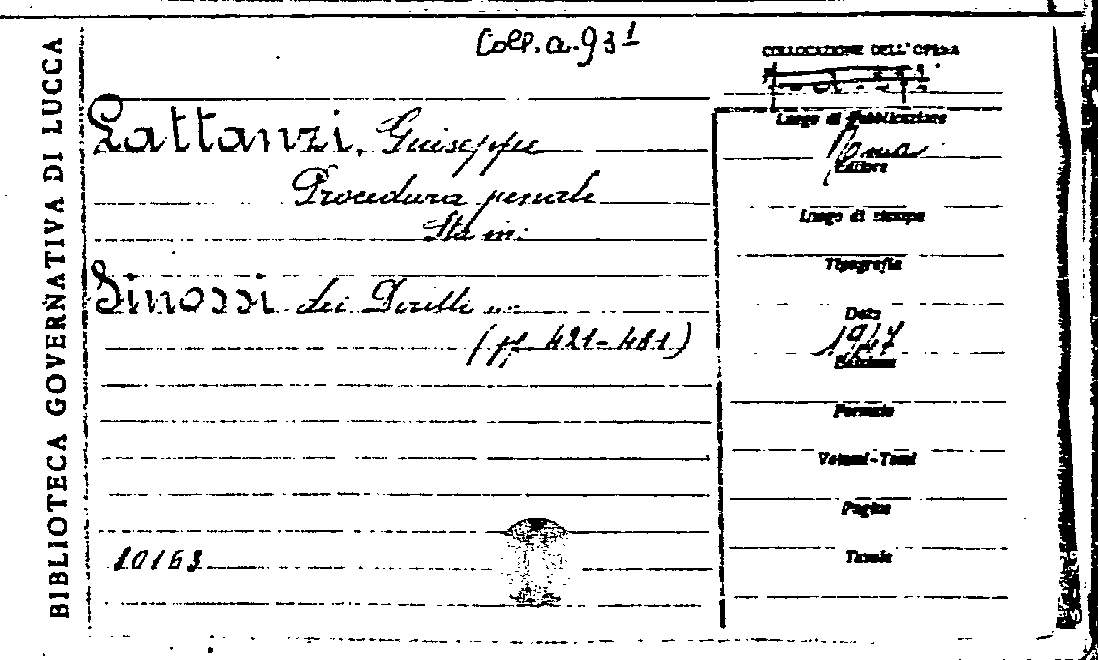 BIBLIOTECA GOVERNATIVA DI LUCCA
Coll. a. 93¹
COLLOCAZIONE DELL'OPERA
Lattanzi, Giuseppe
Procedura penale
Sta in:
Sinossi dei Diritti ...
(pp. 421-481)
10163
Luogo di Pubblicazione
Roma
Editore
Luogo di stampa
Tipografia
Data
1947
Edizione
Formato
Volumi-Tomi
Pagine
Tavole